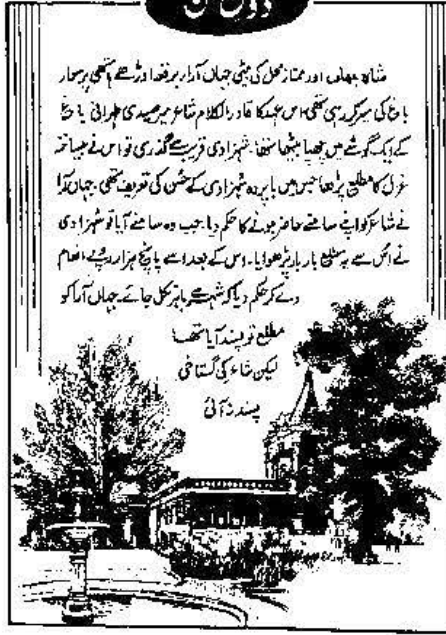 شاہ جہاں اور ممتاز محل کی بیٹی جہاں آرا برقعہ اوڑھے ہاتھی پر سوار
باغ کی سیر کر رہی تھی، اس عہد کا قادر الکلام شاعر میر صیدی طہرانی باغ
کے ایک گوشے میں چھپا بیٹھا تھا۔ شہزادی قریب سے گذری تو اس نے بیساختہ
غزل کا مطلع پڑھا جس میں باپردہ شہزادی کے حسن کی تعریف تھی۔ جہاں آرا
نے شاعر کو اپنے سامنے حاضر ہونے کا حکم دیا۔ جب وہ سامنے آیا تو شہزادی
نے اُس سے یہ مطلع بار بار پڑھوایا۔ اس کے بعد اسے پانچ ہزار روپے انعام
دے کر حکم دیا کہ شہر سے باہر نکل جائے۔ جہاں آرا کو
مطلع تو پسند آیا تھا
لیکن شاعر کی گستاخی
پسند نہ آئی